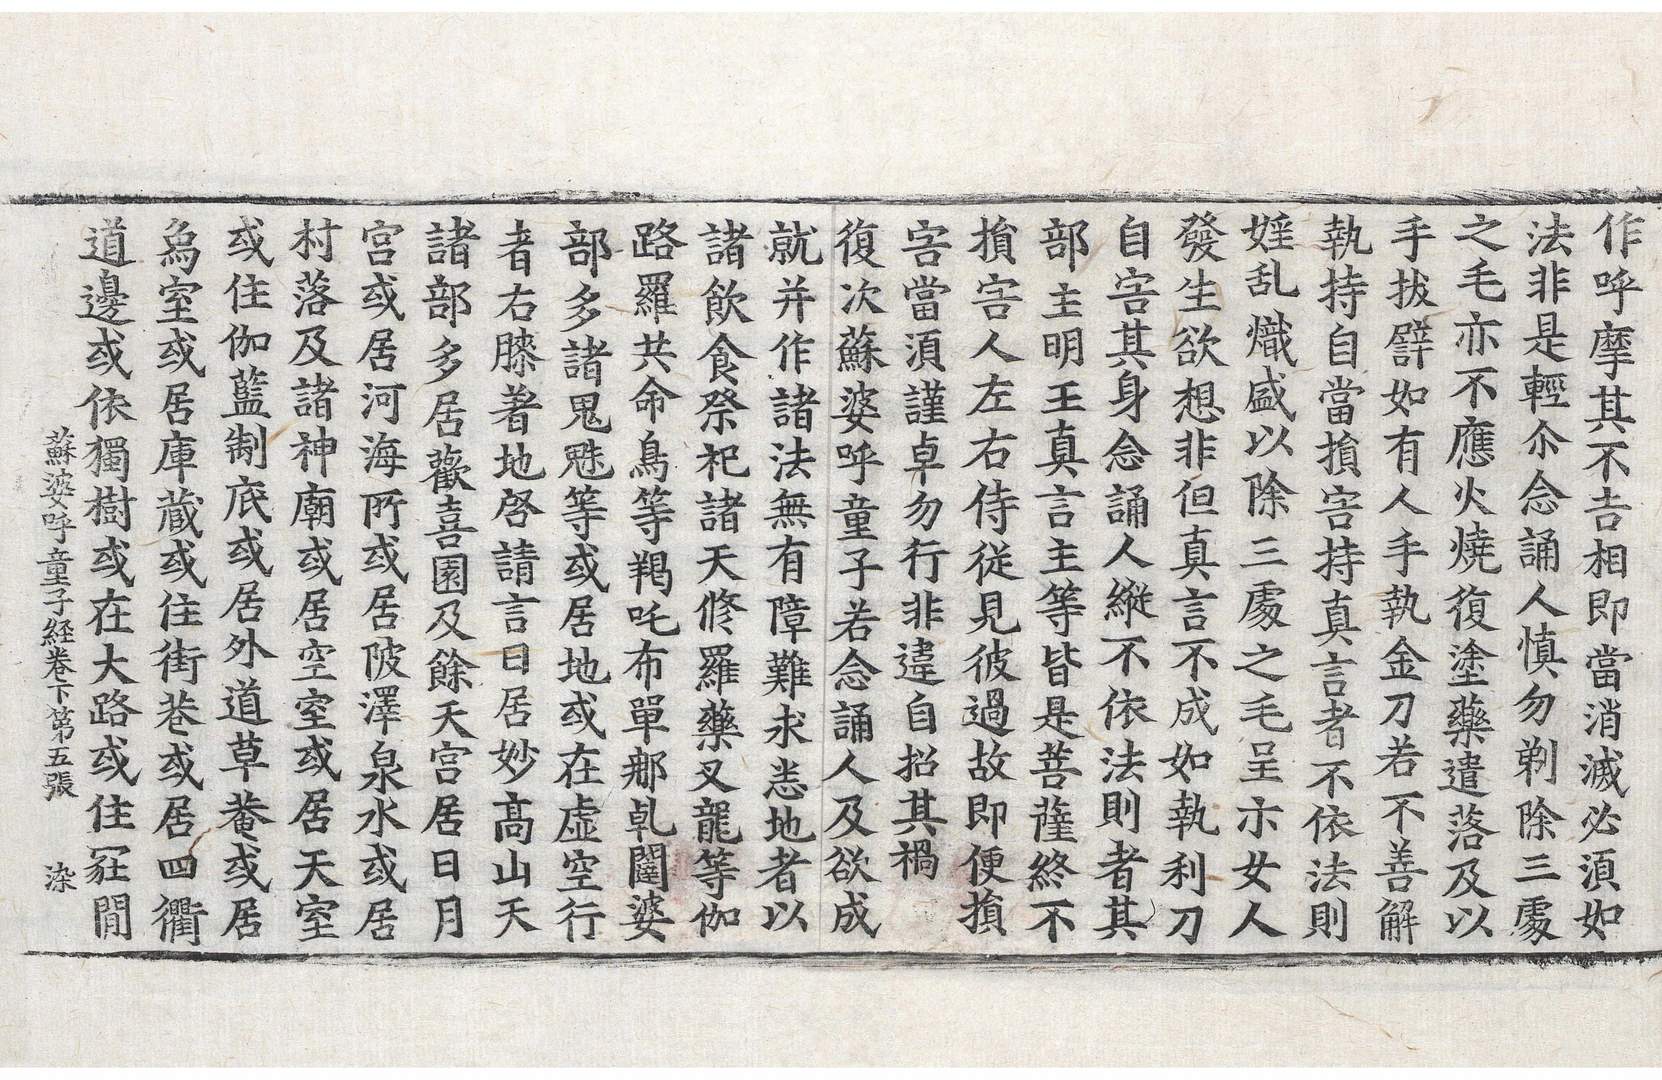 作呼摩其不吉相即當消滅必湏如
法非是輕尒念誦人慎勿剃除三處
之毛亦不應火燒復塗藥遣落及以
手拔譬如有人手執金刀若不善解
執持自當損害持真言者不依法則
婬乱熾盛以除三處之毛呈示女人
發生欲想非但真言不成如執利刀
自害其身念誦人縱不依法則者其
部主明王真言主等皆是菩薩終不
損害人左右侍從見彼過故即便損
害當湏謹卓勿行非違自招其禍
復次蘇婆呼童子若念誦人及欲成
就并作諸法無有障難求恙地者以
諸飲食祭祀諸天修羅藥叉龍等伽
路羅共命鳥等羯吒布單那乹闥婆
部多諸鬼魅等或居地或在虛空行
者右膝著地啓請言曰居妙髙山天
諸部多居歡喜園及餘天宮居日月
宮或居河海所或居陂澤泉水或居
村落及諸神廟或居空室或居天室
或住伽藍制底或居外道草菴或居
為室或居庫藏或住街巷或居四衢
道邊或依獨樹或在大路或住冢間
蘇婆呼童子經卷下第五張 染